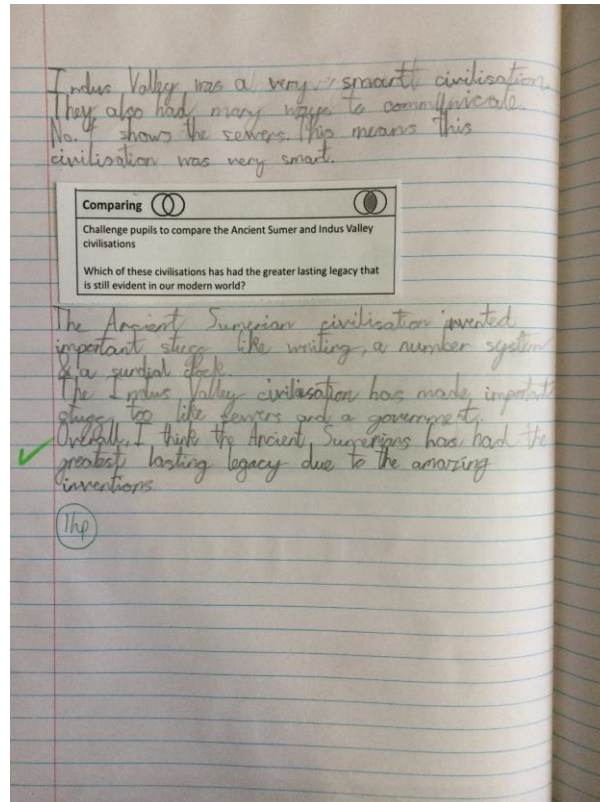 Indus Valley was a very smart civilisation.
They also had many ways to communicate.
No. shows the sewers. This means this
civilisation was very smart.
Comparing
Challenge pupils to compare the Ancient Sumer and Indus Valley
civilisations
Which of these civilisations has had the greater lasting legacy that
is still evident in our modern world?
The Ancient Sumerian civilisation invented
important stuff like writing, a number system
& a sundial clock.
The Indus Valley civilisation has made important
stuff too like sewers and a government.
Overall, I think the Ancient Sumerians has had the
greatest lasting legacy due to the amazing
inventions
1hp